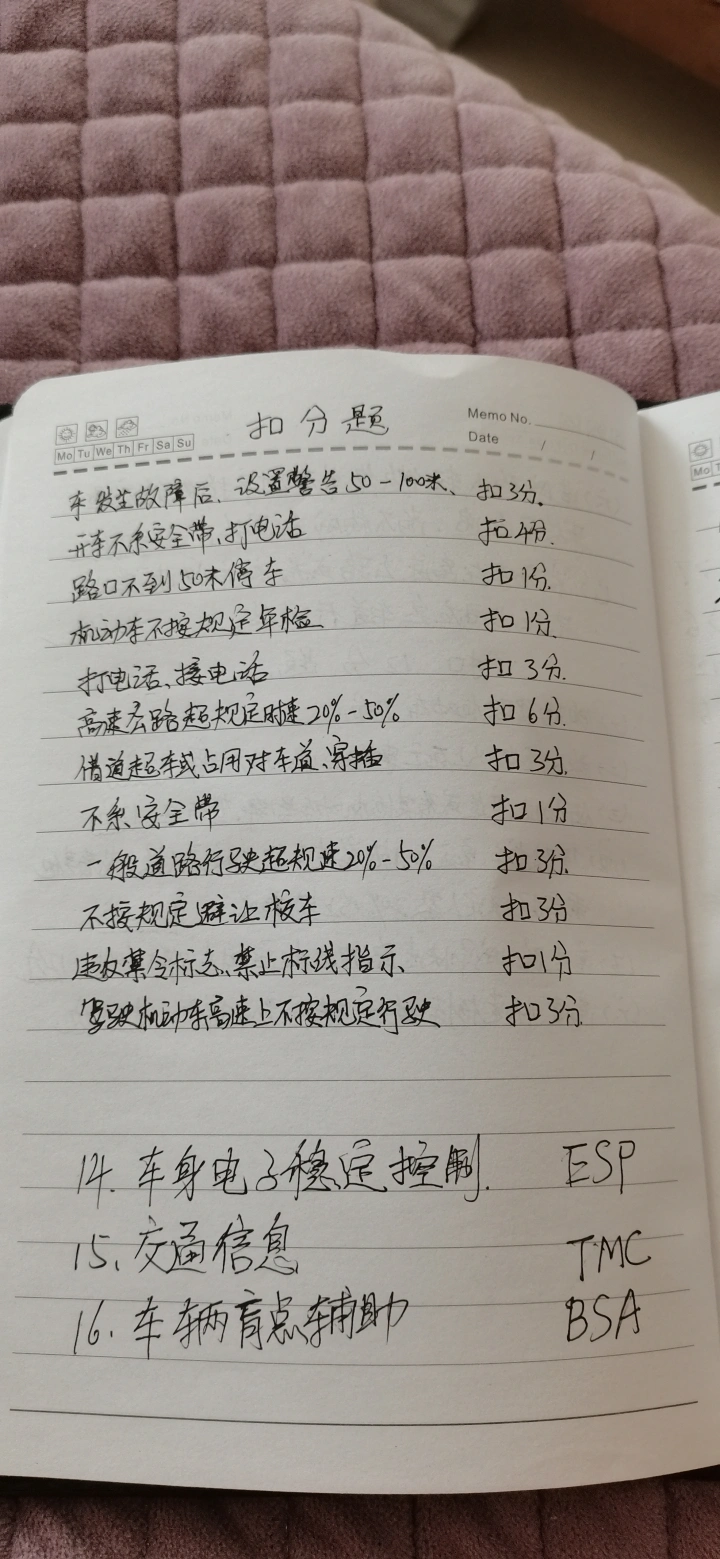 扣分题
Memo No.
Mo Tu We Th Fr Sa Su
Date / /
车发生故障后、设置警告50-100米、 扣3分.
开车不系安全带、打电话 扣4分.
路口不到50米停车 扣1分.
机动车不按规定年检 扣1分.
打电话、接电话 扣3分.
高速公路超规定时速20%-50% 扣6分.
借道超车或占用对车道、穿插 扣3分.
不系安全带 扣1分
一般道路行驶超规速20%-50% 扣3分.
不按规定避让校车 扣3分
违反禁令标志、禁止标线指示、 扣1分
驾驶机动车高速上不按规定行驶 扣3分.
14. 车身电子稳定控制. ESP
15、交通信息 TMC
16. 车辆盲点辅助 BSA
Mo